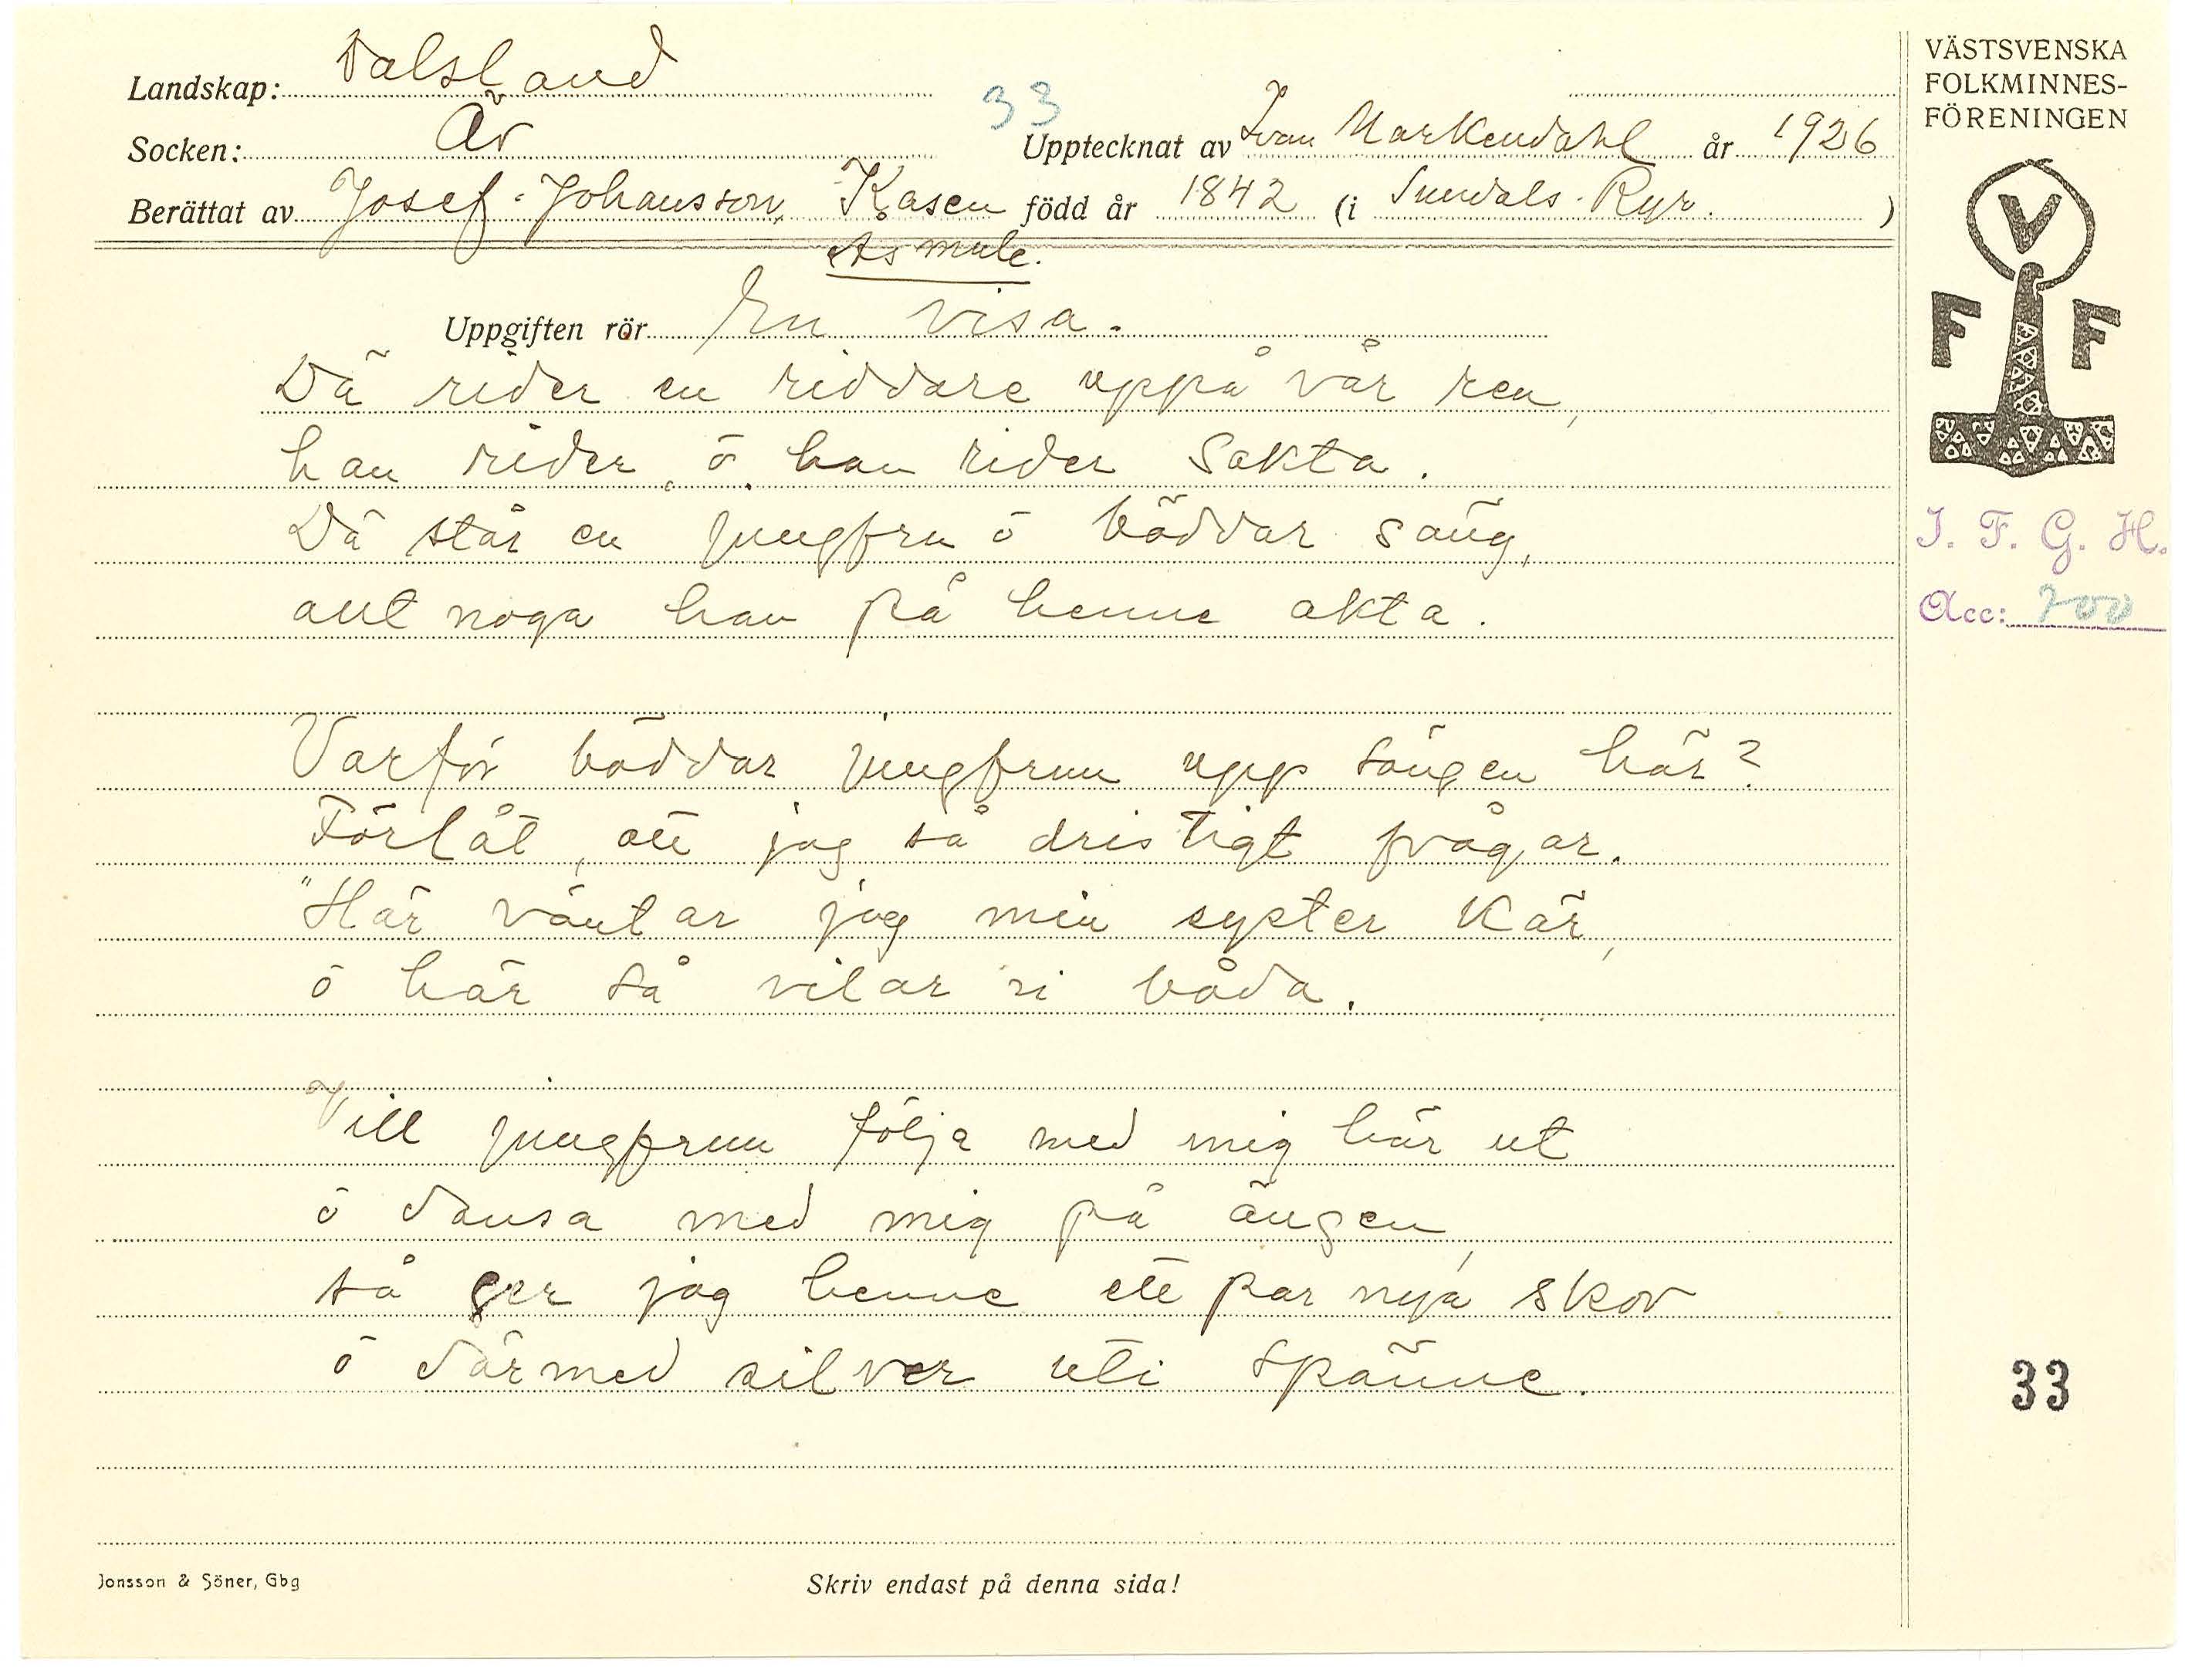 Landskap: Dalsland
Socken: Är
33
Upptecknat av Ivan Markendahl år 1926
Berättat av Josef Johansson, Kasen född år 1842 (i Sundals-Ryr. )
Åsmule.
Uppgiften rör En visa.
Dä rider en riddare uppå vår ren,
han rider ö han rider sakta.
Dä står en jungfru ö bäddar säng,
allt noga han på henne akta.
Varför bäddar jungfrun upp sängen här?
Förlåt, att jag så dristigt frågar.
"Här väntar jag min syster kär,
ö här så vilar vi båda.
Vill jungfrun följa med mig här ut
ö dansa med mig på ängen,
så ger jag henne ett par nya skor
ö därmed silver uti spänne.
Jonsson & Söner, Gbg
Skriv endast på denna sida!
VÄSTSVENSKA
FOLKMINNES-
FÖRENINGEN
V
F F
I. F. G. H.
Acc: 700
33